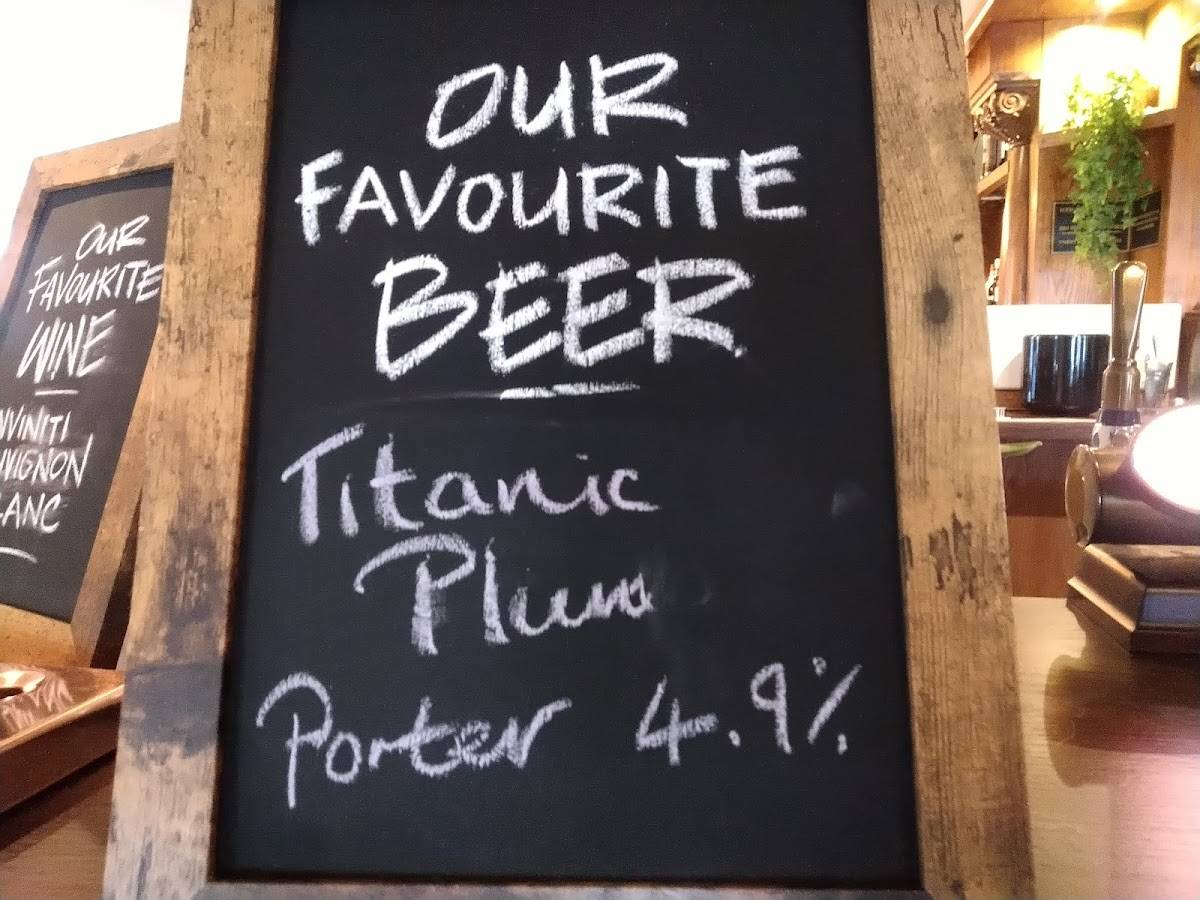 OUR
FAVOURITE
BEER
Titanic
Plum
Porter 4.9%
OUR
FAVOURITE
WINE
NVINITI
UVIGNON
LANC